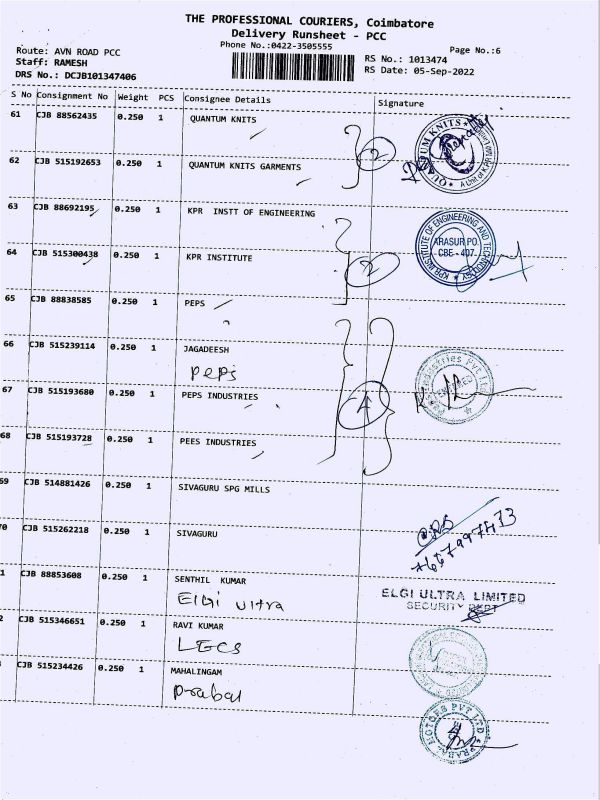 THE PROFESSIONAL COURIERS, Coimbatore
Delivery Runsheet - PCC
Phone No.:0422-3505555
Page No.:6
Route: AVN ROAD PCC
Staff: RAMESH
DRS No.: DCJB101347406
RS No.: 1013474
RS Date: 05-Sep-2022
S No Consignment No Weight PCS Consignee Details Signature
61 CJB 88562435 0.250 1 QUANTUM KNITS
2
62 CJB 515192653 0.250 1 QUANTUM KNITS GARMENTS
63 CJB 88692195 0.250 1 KPR INSTT OF ENGINEERING
KPR INSTITUTE OF ENGINEERING AND TECHNOLOGY
ARASUR PO.
CBE - 407
64 CJB 515300438 0.250 1 KPR INSTITUTE
2
65 CJB 88838585 0.250 1 PEPS
66 CJB 515239114 0.250 1 JAGADEESH
Peps
67 CJB 515193680 0.250 1 PEPS INDUSTRIES
4
68 CJB 515193728 0.250 1 PEES INDUSTRIES
69 CJB 514881426 0.250 1 SIVAGURU SPG MILLS
70 CJB 515262218 0.250 1 SIVAGURU
1 CJB 88853608 0.250 1 SENTHIL KUMAR
Elgi Ultra
ELGI ULTRA LIMITED
SECURITY DEPT
2 CJB 515346651 0.250 1 RAVI KUMAR
LECS
CJB 515234426 0.250 1 MAHALINGAM
Prabal
PRABAL MOTORS PVT LTD